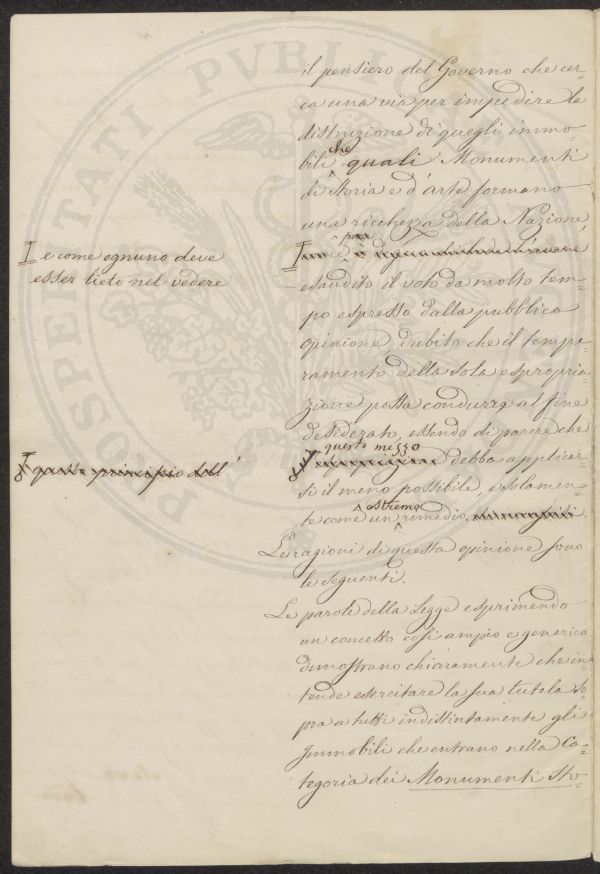 PROSPERITATI PVBLI
il pensiero del Governo che cer=
ca una via per impedire la
distruzione di quegli immo=
che
bili quali Monumenti
di Storia e d'arte formano
una ricchezza della Nazione,
I e come ognuno deve
esser lieto nel vedere
esaudito il voto da molto tem=
po espresso dalla pubblica
opinione, dubito che il tempe=
ramento della sola espropria=
zione possa condurre al fine
desiderato, essendo di parere che
questo mezzo
I questo principio dell'
debba applicar=
si il meno possibile, e solamen=
estremo
te come un rimedio
Le ragioni di questa opinione sono
le seguenti.
Le parole della Legge esprimendo
un concetto così ampio e generico
dimostrano chiaramente che in=
tende esercitare la sua tutela so=
pra a tutti indistintamente gli
Immobili che entrano nella Ca=
tegoria dei Monumenti Sto=